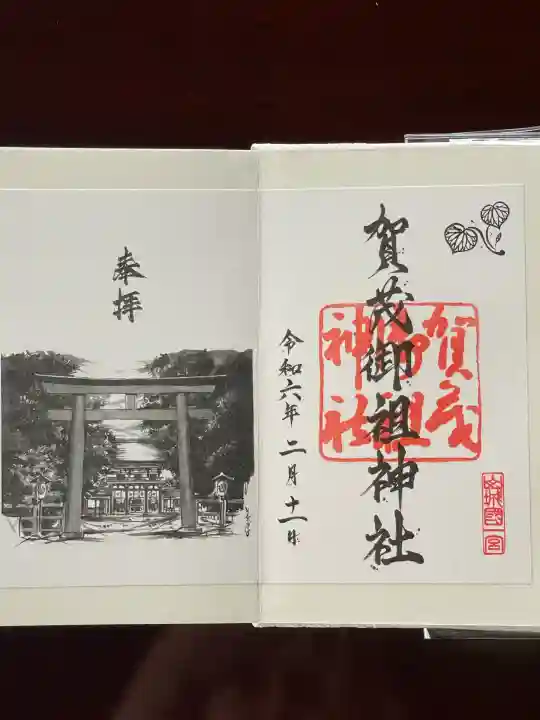 賀茂御祖神社
賀茂
御祖
神社
山城國一宮
令和六年二月十一日
奉拝